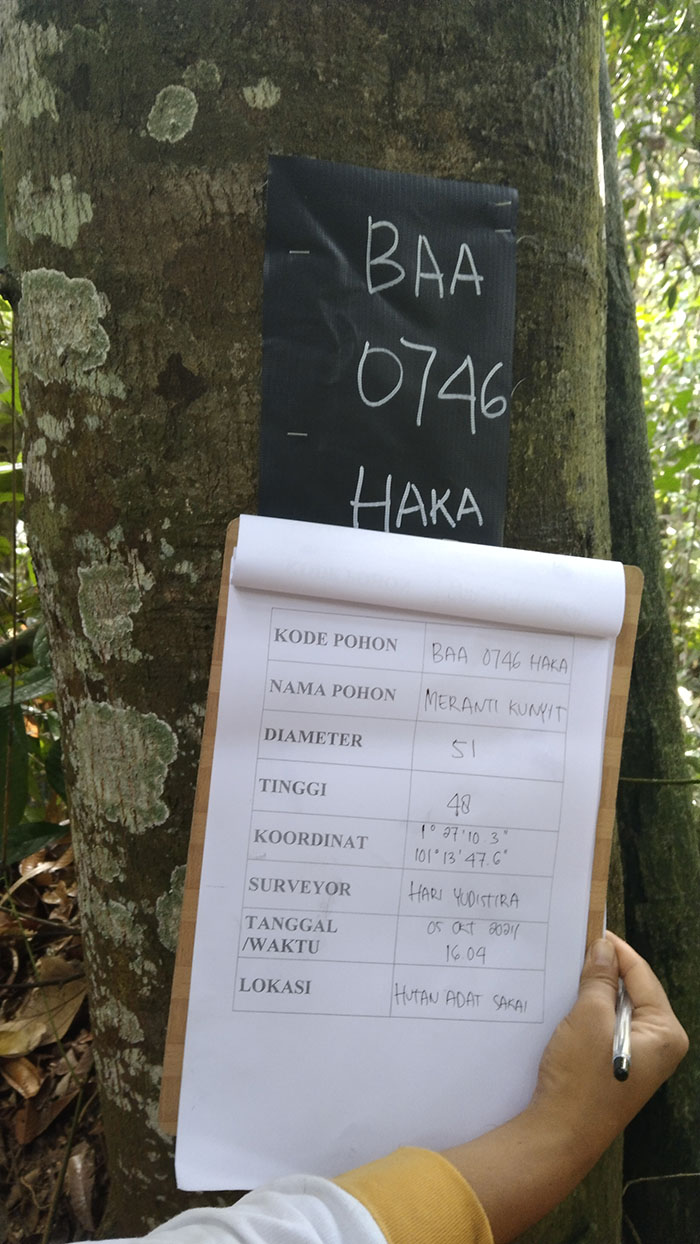 BAA
0746
HAKA
KODE POHON BAA 0746 HAKA
NAMA POHON MERANTI KUNYIT
DIAMETER 51
TINGGI 48
KOORDINAT 1° 27'10.3"
101° 13' 47.6"
SURVEYOR HARI YUDISTIRA
TANGGAL 05 OKT 2024
/WAKTU 16.04
LOKASI HUTAN ADAT SAKAI